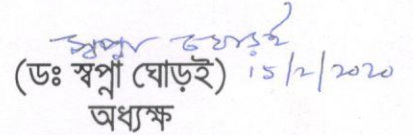 স্বপ্না ঘোড়ই
(ডঃ স্বপ্না ঘোড়ই) 15/2/2020
অধ্যক্ষ